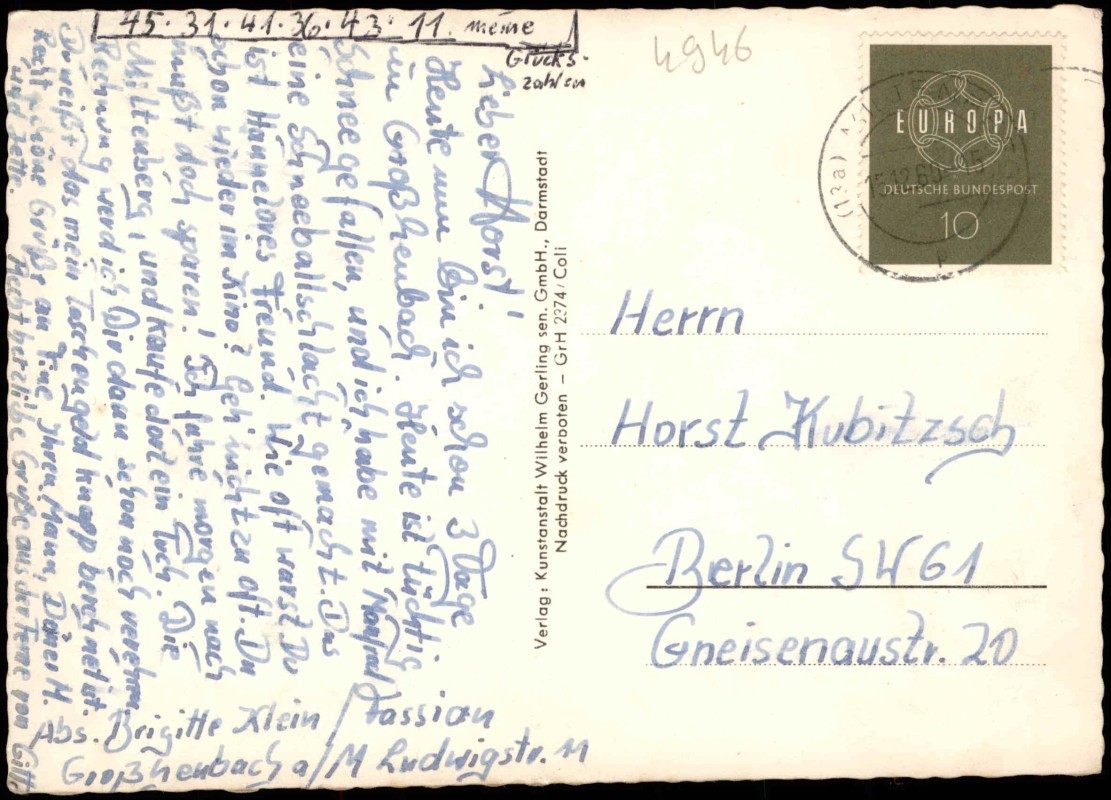 45. 31. 41. 36. 43. 11. meine
Glücks-
zahlen
4946
Lieber Horst!
Heute nun bin ich schon 3 Tage
in Großheubach. Heute ist tüchtig
Schnee gefallen, und ich habe mit Manfred
eine Schneeballschlacht gemacht. Das
ist Hannelores Freund. Wie oft warst Du
schon wieder im Kino? Geh nicht zu oft. Du
mußt doch sparen! Ich fahre morgen nach
Miltenberg, und kaufe dort ein Tuch. Die
Rechnung werd ich Dir dann schon noch verehren.
Du weißt das mein Taschengeld knapp berechnet ist.
Recht schöne Grüße an Tine, Ihren Mann, M.
und Jette. Recht herzliche Grüße aus der Ferne von Gitte
Abs. Brigitte Klein / Dassion
Großheubach a/M Ludwigstr. 11
Verlag: Kunstanstalt Wilhelm Gerling sen. GmbH., Darmstadt
Nachdruck verboten – GrH 2374/Coli
EUROPA
DEUTSCHE BUNDESPOST
10
(13a)
15.12.60
Herrn
Horst Kubitzsch
Berlin SW 61
Gneisenaustr. 20